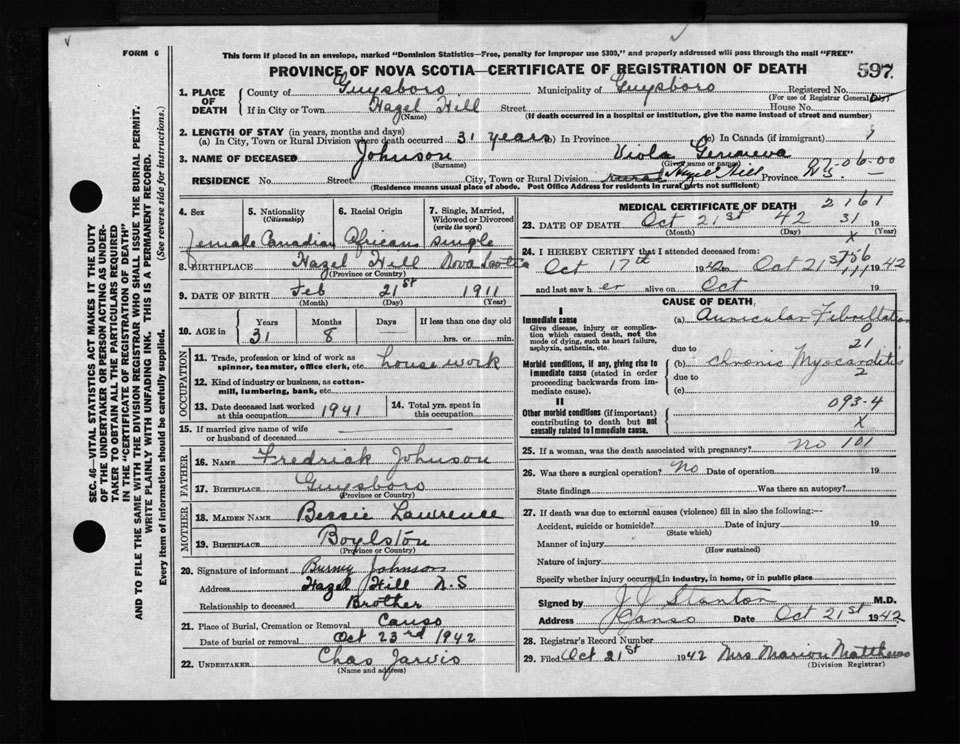 FORM 6
This form if placed in an envelope, marked "Dominion Statistics—Free, penalty for improper use $300," and properly addressed will pass through the mail "FREE"
PROVINCE OF NOVA SCOTIA—CERTIFICATE OF REGISTRATION OF DEATH
597
1. PLACE OF DEATH
County of Guysboro Municipality of Guysboro Registered No.
(For use of Registrar General Only)
If in City or Town Hazel Hill Street House No.
(Name) (If death occurred in a hospital or institution, give the name instead of street and number)
2. LENGTH OF STAY (in years, months and days)
(a) In City, Town or Rural Division where death occurred 31 years (b) In Province (c) In Canada (if immigrant)
3. NAME OF DECEASED Johnson Viola Geneva
(Surname) (Given name or names)
27-06-00
RESIDENCE No. Street City, Town or Rural Division Hazel Hill Province N.S.
(Residence means usual place of abode. Post Office Address for residents in rural parts not sufficient)
4. Sex
female
5. Nationality (Citizenship)
Canadian
6. Racial Origin
African
7. Single, Married, Widowed or Divorced (write the word)
single
8. BIRTHPLACE Hazel Hill Nova Scotia
(Province or Country)
9. DATE OF BIRTH Feb 21st 1911
(Month) (Day) (Year)
10. AGE in
Years Months Days If less than one day old
31 8 hrs. or min.
OCCUPATION
11. Trade, profession or kind of work as spinner, teamster, office clerk, etc. housework
12. Kind of industry or business, as cotton-mill, lumbering, bank, etc.
13. Date deceased last worked at this occupation 1941
14. Total yrs. spent in this occupation
15. If married give name of wife or husband of deceased
FATHER
16. NAME Fredrick Johnson
17. BIRTHPLACE Guysboro
(Province or Country)
MOTHER
18. MAIDEN NAME Bessie Lawrence
19. BIRTHPLACE Boylston
(Province or Country)
20. Signature of informant Johnson
Address Hazel Hill N.S
Relationship to deceased Brother
21. Place of Burial, Cremation or Removal Canso
Date of burial or removal Oct 23rd 1942
22. UNDERTAKER Chas Jarvis
(Name and address)
MEDICAL CERTIFICATE OF DEATH
2161
23. DATE OF DEATH Oct 21st 42 19
(Month) (Day) (Year)
31
X
24. I HEREBY CERTIFY that I attended deceased from:
Oct 17th 19 to Oct 21st 1942
and last saw her alive on Oct 19
CAUSE OF DEATH
I
Immediate cause
Give disease, injury or complication which caused death, not the mode of dying, such as heart failure, asphyxia, asthenia, etc.
(a) Auricular Fibrillation
0
21
due to
Morbid conditions, if any, giving rise to immediate cause (stated in order proceeding backwards from immediate cause).
(b) Chronic Myocarditis
2
due to
(c)
093-4
II
Other morbid conditions (if important) contributing to death but not causally related to immediate cause.
X
25. If a woman, was the death associated with pregnancy? No 101
26. Was there a surgical operation? No Date of operation 19
State findings Was there an autopsy?
27. If death was due to external causes (violence) fill in also the following:—
Accident, suicide or homicide? Date of injury 19
(State which)
Manner of injury
(How sustained)
Nature of injury
Specify whether injury occurred in industry, in home, or in public place
Signed by J J Stanton M.D.
Address Canso Date Oct 21st 1942
28. Registrar's Record Number
29. Filed Oct 21st 1942 Mrs Marion Matthews
(Division Registrar)
SEC. 46—VITAL STATISTICS ACT MAKES IT THE DUTY
OF THE UNDERTAKER OR PERSON ACTING AS UNDER-
TAKER TO OBTAIN ALL THE PARTICULARS REQUIRED
IN THE "CERTIFICATE OF REGISTRATION OF DEATH"
AND TO FILE THE SAME WITH THE DIVISION REGISTRAR WHO SHALL ISSUE THE BURIAL PERMIT.
WRITE PLAINLY WITH UNFADING INK. THIS IS A PERMANENT RECORD.
Every item of information should be carefully supplied. (See reverse side for instructions.)